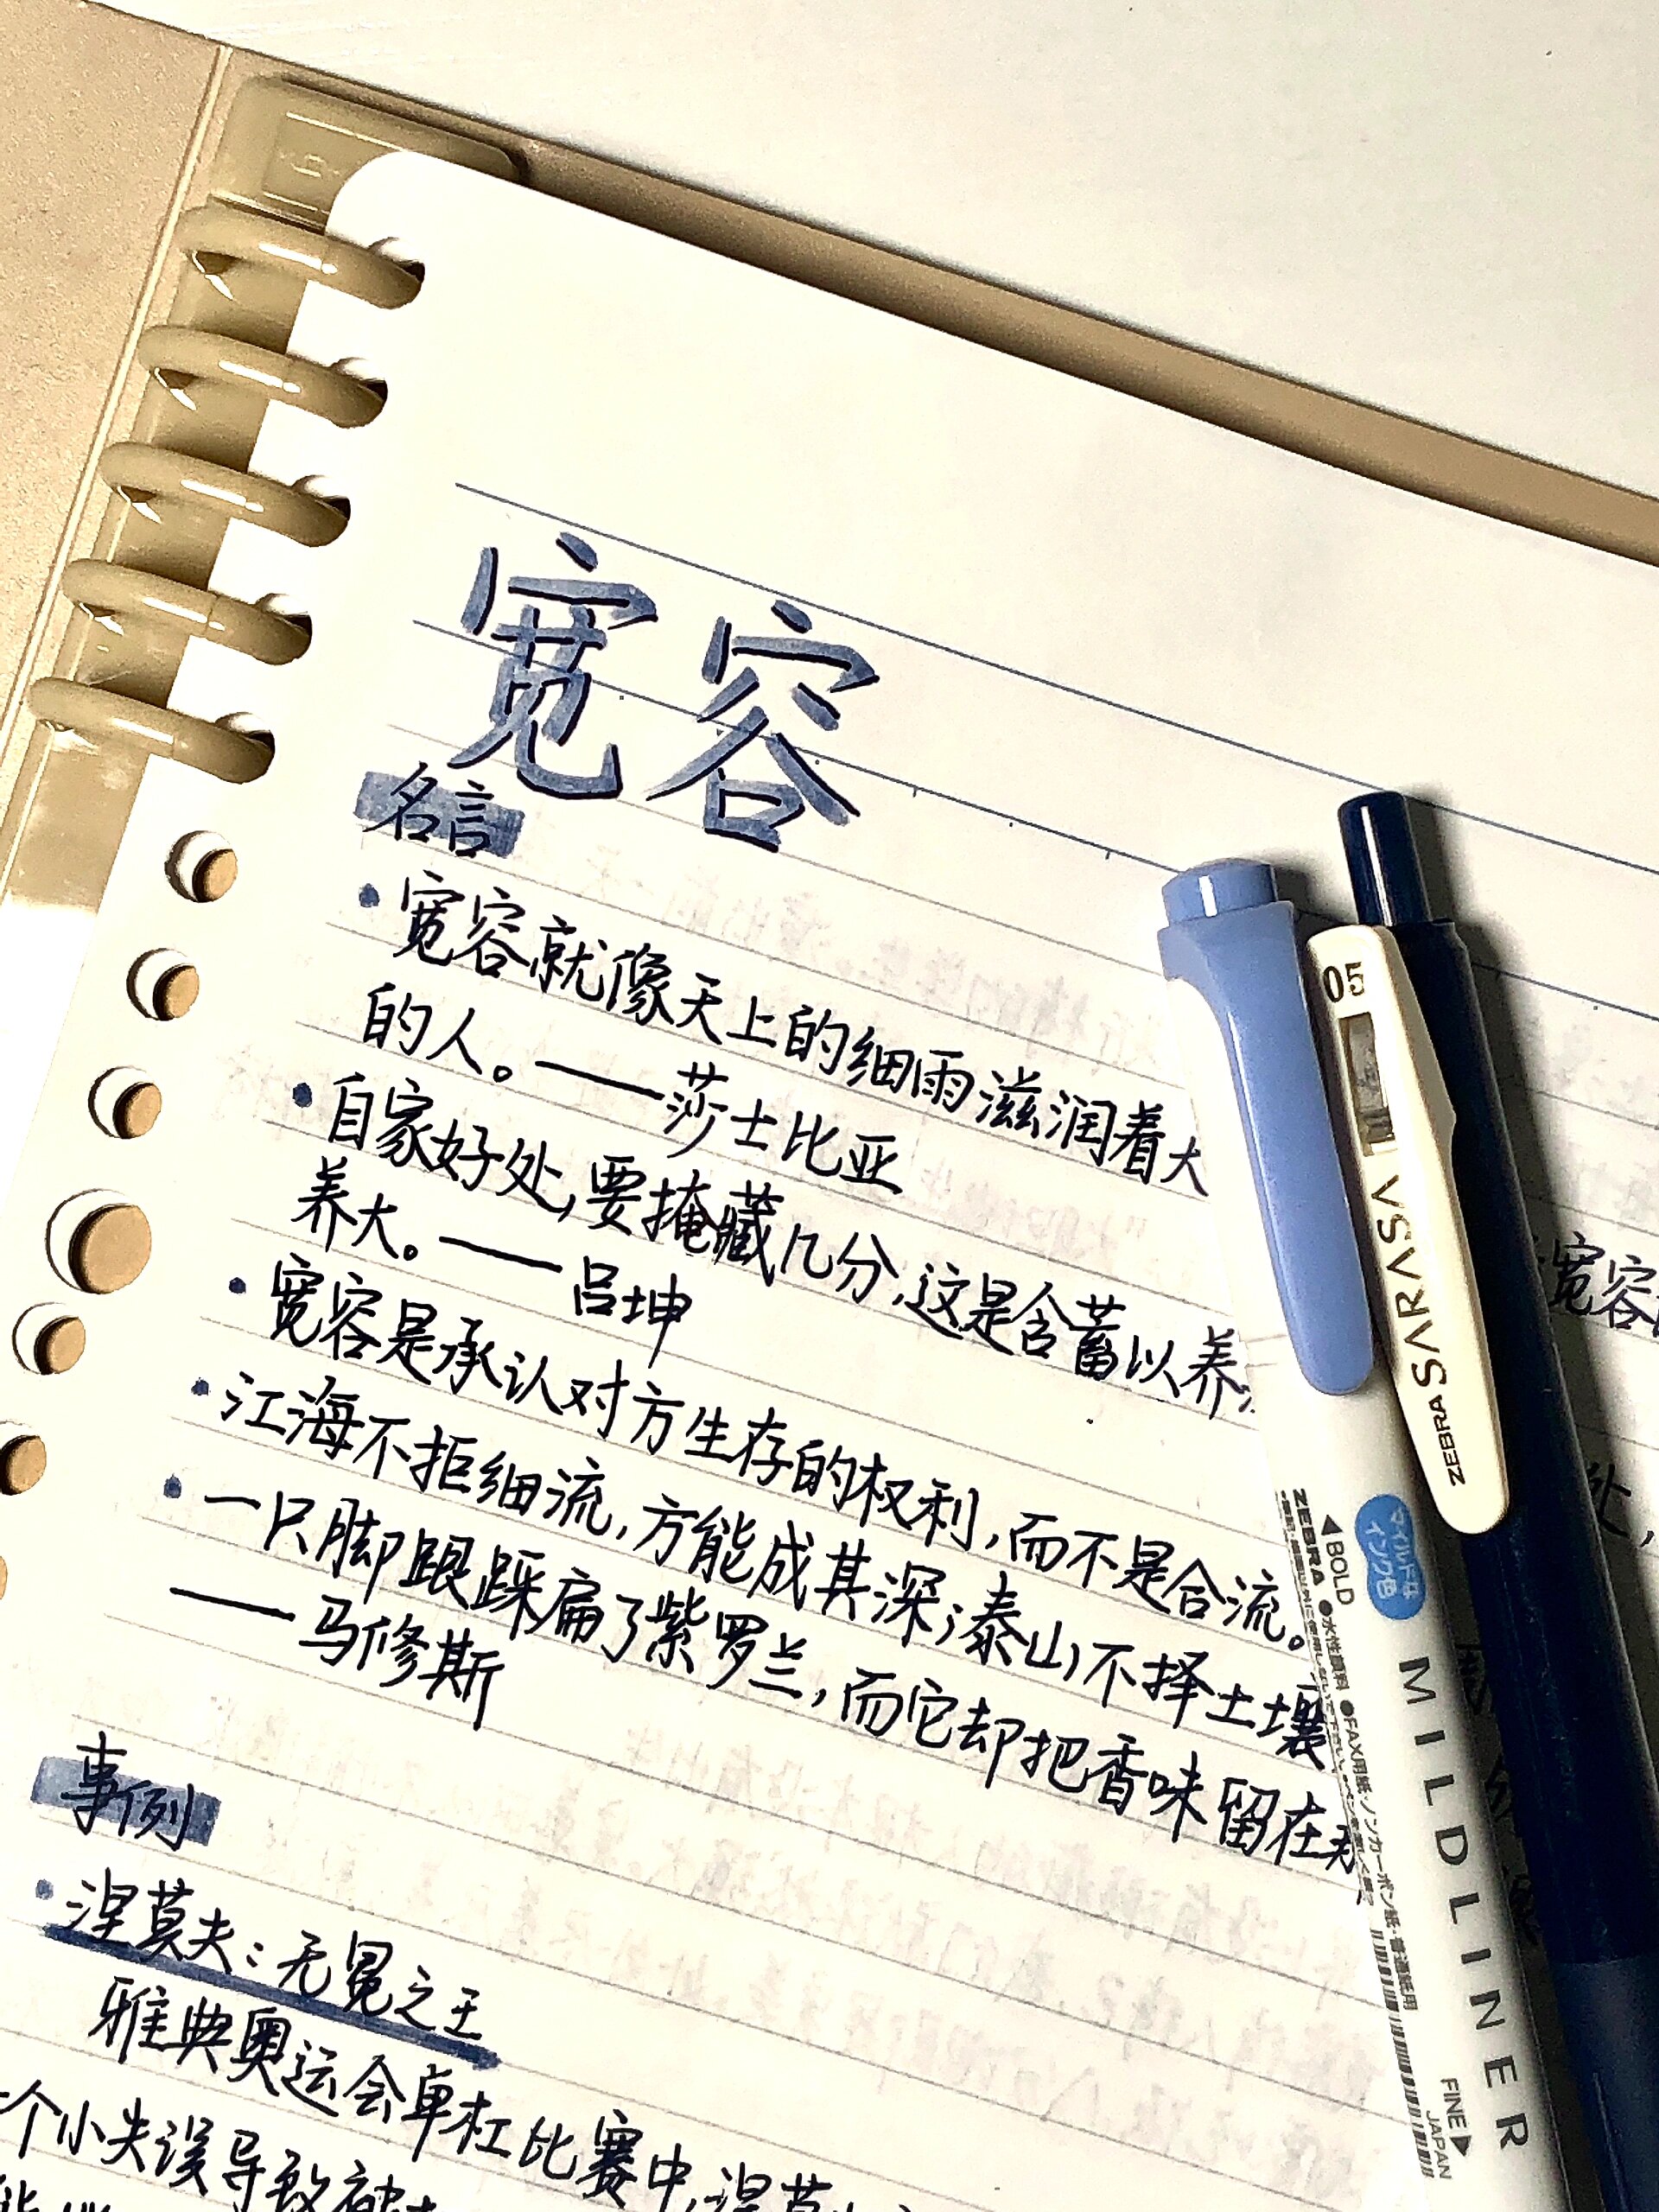 宽容
名言
·宽容就像天上的细雨滋润着大
的人。——莎士比亚
·自家好处,要掩藏几分,这是含蓄以养
养大。——吕坤
·宽容是承认对方生存的权利,而不是合流。
·江海不拒细流,方能成其深;泰山不择土壤
·一只脚跟踩扁了紫罗兰,而它却把香味留在
——马修斯
事例
·涅莫夫:无冕之王
雅典奥运会单杠比赛中,涅莫
个小失误导致
宽容
处,
05
ZEBRA SARASA
◀BOLD
ZEBRA ●水性顔料 ●FAX用紙・ノンカーボン紙・普通紙用
マイルドな
インク色
MILDLINER
FINE▶
JAPAN